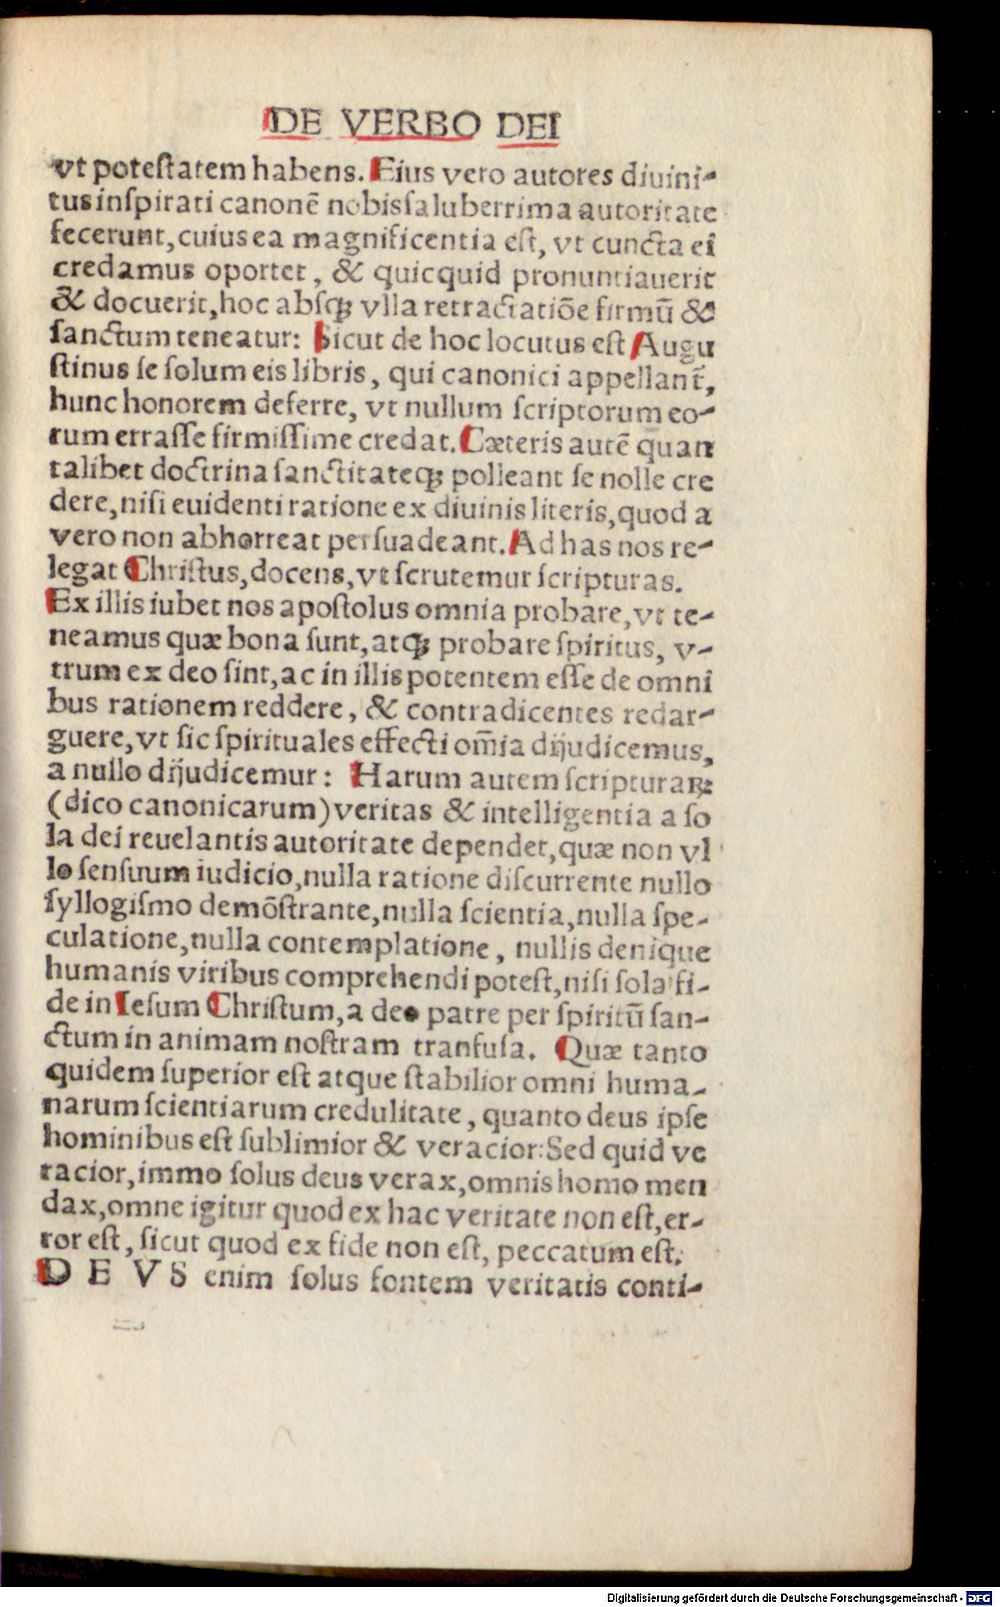 DE VERBO DEI
vt poteſtatem habens. Eius vero autores diuini-
tus inſpirati canonē nobis ſaluberrima autoritate
fecerunt, cuius ea magnificentia eſt, vt cuncta ei
credamus oportet, & quicquid pronuntiauerit
& docuerit, hoc abſqꝫ vlla retractatiōe firmū &
ſanctum teneatur: Sicut de hoc locutus eſt Augu
ſtinus ſe ſolum eis libris, qui canonici appellanť,
hunc honorem deferre, vt nullum ſcriptorum eo-
rum erraſſe firmiſſime credat. Cæteris autē quan
talibet doctrina ſanctitateqꝫ polleant ſe nolle cre
dere, niſi euidenti ratione ex diuinis literis, quod a
vero non abhorreat perſuadeant. Ad has nos re-
legat Chriſtus, docens, vt ſcrutemur ſcripturas.
Ex illis iubet nos apoſtolus omnia probare, vt te-
neamus quæ bona ſunt, atqꝫ probare ſpiritus, v-
trum ex deo ſint, ac in illis potentem eſſe de omni
bus rationem reddere, & contradicentes redar-
guere, vt ſic ſpirituales effecti om̄ia dijudicemus,
a nullo dijudicemur: Harum autem ſcripturaꝝ
(dico canonicarum) veritas & intelligentia a ſo
la dei reuelantis autoritate dependet, quæ non vl
lo ſenſuum iudicio, nulla ratione diſcurrente nullo
ſyllogiſmo demōſtrante, nulla ſcientia, nulla ſpe-
culatione, nulla contemplatione, nullis denique
humanis viribus comprehendi poteſt, niſi ſola fi-
de in Ieſum Chriſtum, a deo patre per ſpiritū ſan-
ctum in animam noſtram tranſuſa. Quæ tanto
quidem ſuperior eſt atque ſtabilior omni huma-
narum ſcientiarum credulitate, quanto deus ipſe
hominibus eſt ſublimior & veracior: Sed quid ve
racior, immo ſolus deus verax, omnis homo men
dax, omne igitur quod ex hac veritate non eſt, er-
ror eſt, ſicut quod ex fide non eſt, peccatum eſt.
DEVS enim ſolus fontem veritatis conti-
Digitalisierung gefördert durch die Deutsche Forschungsgemeinschaft - DFG